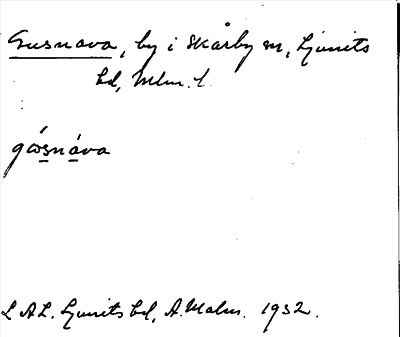 Gusnava, by i Skårby sn, Ljunits
hd, Mlm. l.
gósnáva
LAL. Ljunits hd, A. Malm. 1932.